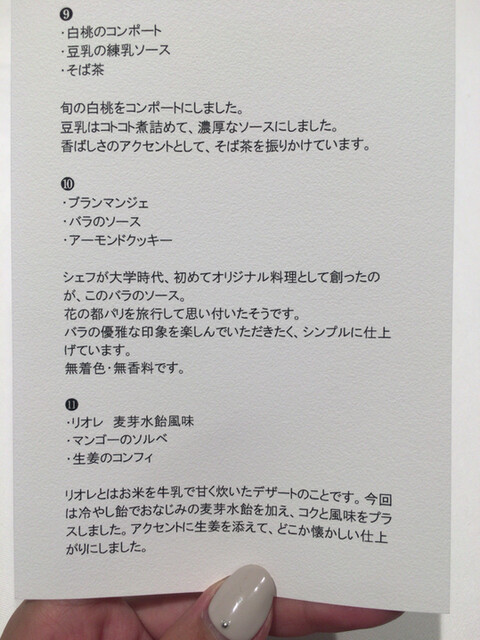 ❾
・白桃のコンポート
・豆乳の練乳ソース
・そば茶
旬の白桃をコンポートにしました。
豆乳はコトコト煮詰めて、濃厚なソースにしました。
香ばしさのアクセントとして、そば茶を振りかけています。
❿
・ブランマンジェ
・バラのソース
・アーモンドクッキー
シェフが大学時代、初めてオリジナル料理として創ったの
が、このバラのソース。
花の都パリを旅行して思い付いたそうです。
バラの優雅な印象を楽しんでいただきたく、シンプルに仕上
げています。
無着色・無香料です。
⓫
・リオレ　麦芽水飴風味
・マンゴーのソルベ
・生姜のコンフィ
リオレとはお米を牛乳で甘く炊いたデザートのことです。今回
は冷やし飴でおなじみの麦芽水飴を加え、コクと風味をプラ
スしました。アクセントに生姜を添えて、どこか懐かしい仕上
がりにしました。